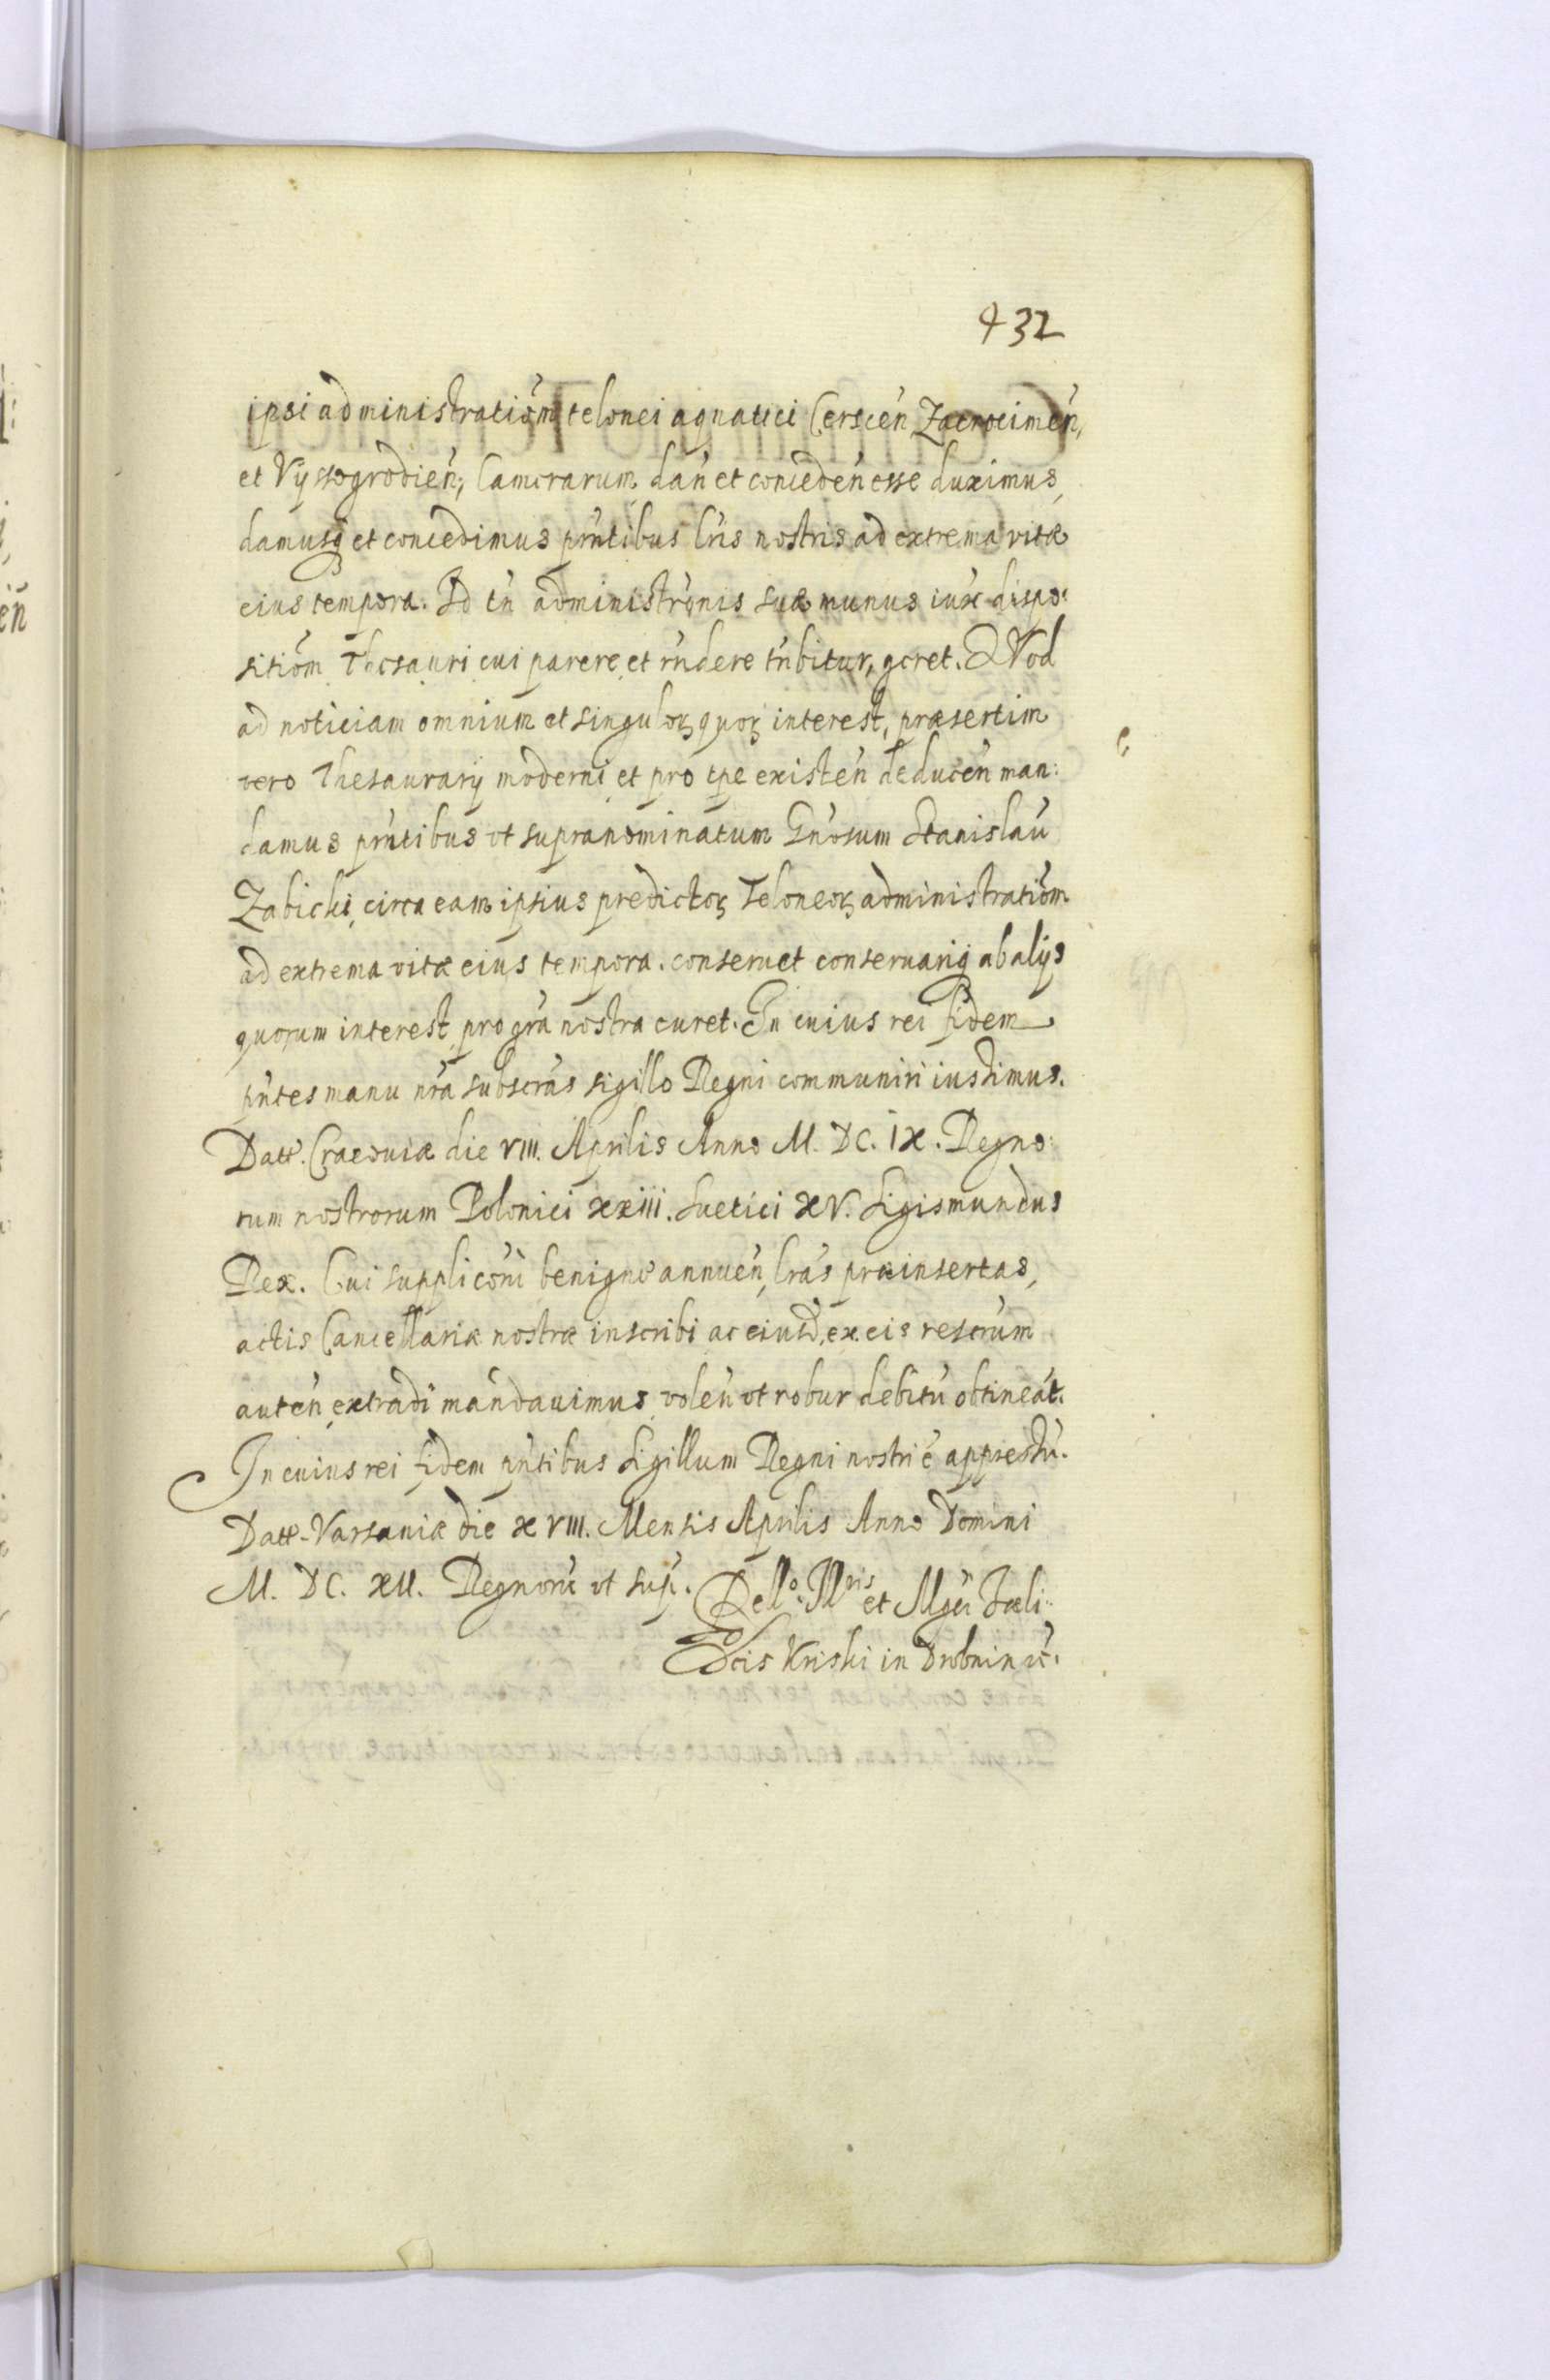 432
ipsi administratiōm telonei aquatici Cerscen̄ Zacrocimen̄,
et Vyssogrodien̄, Camerarum dan̄ et conceden̄ esse duximus,
damusq̨ et concedimus pn̄tibus lr̄is nostris ad extrema vitæ
eius tempora. Id tn̄ administr̄onis suæ munus iux̄ dispo:
sitiōm Thesauri cui parere et rn̄dere tn̄bitur, geret. QVod
ad noticiam omnium et singuloꝝ quoꝝ interest, præsertim
vero Thesaurarij moderni et pro tp̄e existen̄ deducen̄ man:
damus pn̄tibus vt supranominatum Gn̄osum Stanislaū
Zabicki circa eam ipsius predictoꝝ Teloneoꝝ administratiōm
ad extrema vitæ eius tempora. conseruet conseruariq̨ ab alijs
quorum interest pro gr̄a nostra curet. In cuius rei fidem
pn̄tes manu nr̄a subscr̄as sigillo Regni communiri iussimus.
Datt. Cracouiæ die VIII. Aprilis Anno M. DC. IX. Regno:
rum nostrorum Polonici XXIII. Suetici XV. Sigismundus
Rex. Cui supplicōni benigne annuen̄, lr̄as præinsertas,
actis Cancellariæ nostræ inscribi ac eiusd. ex eis rescr̄um
auten̄ extradi mandauimus, volen̄ vt robur debitū obtineāt.
In cuius rei fidem pn̄tibus Sigillum Regni nostri ē appressū.
Datt. Varsauiæ die XVIII. Mensis Aprilis Anno Domini
M. DC. XII. Regnorū vt sup̄. Rello. Illris et Mgci Fæli:
cis Kriski in Drobnin etc.